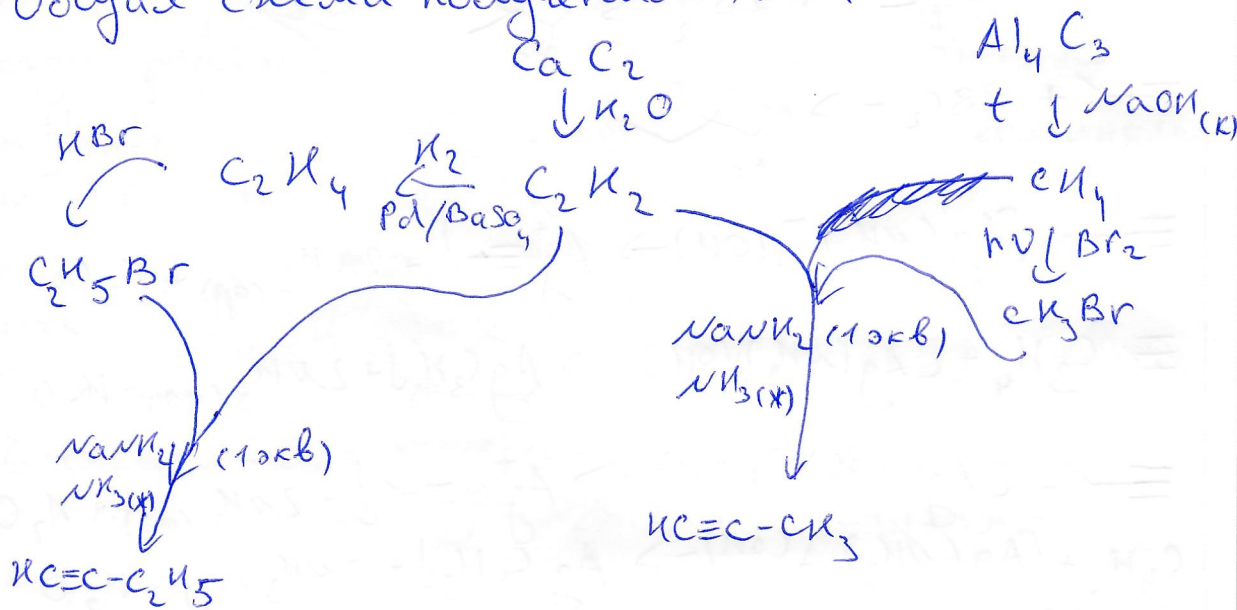 Общая схема получения
CaC₂
Al₄C₃
↓ H₂O
t ↓ NaOH(к)
HBr
C₂H₄ ← H₂ Pd/BaSO₄ C₂H₂
CH₄
hν ↓ Br₂
C₂H₅Br
CH₃Br
NaNH₂ (1экв)
NH₃(ж)
NaNH₂ (1экв)
NH₃(ж)
HC≡C-CH₃
HC≡C-C₂H₅